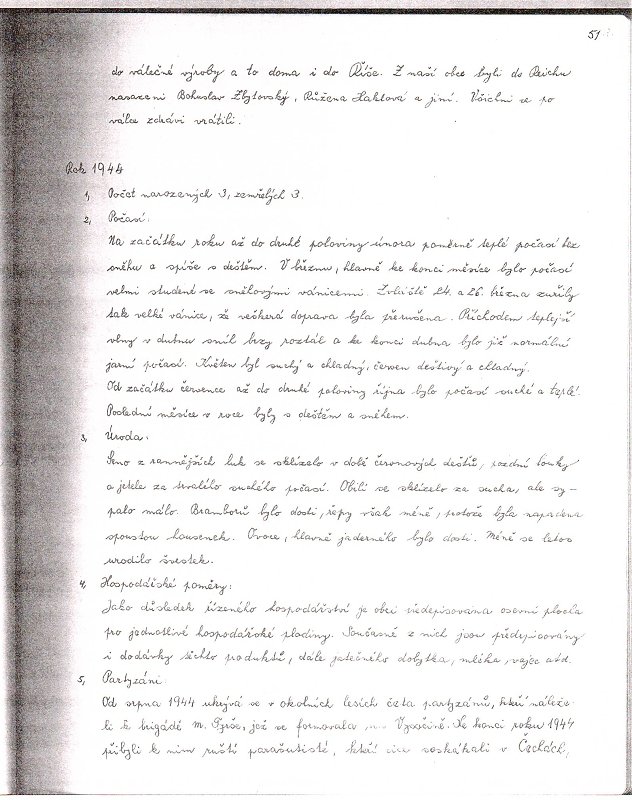 51
do válečné výroby a to doma i do Říše. Z naší obce byli do Reichu
nasazeni Bohuslav Zbytovský, Růžena Haklová a jiní. Všichni se po
válce zdrávi vrátili.
Rok 1944
1, Počet narozených 3, zemřelých 3.
2, Počasí:
Na začátku roku až do druhé poloviny února poměrně teplé počasí bez
sněhu a spíše s deštěm. V březnu, hlavně ke konci měsíce bylo počasí
velmi studené se sněhovými vánicemi. Zvláště 24. a 26. března zuřily
tak velké vánice, že veškerá doprava byla přerušena. Příchodem teplejší
vlny v dubnu sníh brzy roztál a ke konci dubna bylo již normální
jarní počasí. Květen byl suchý a chladný, červen deštivý a chladný.
Od začátku července až do druhé poloviny října bylo počasí suché a teplé.
Poslední měsíce v roce byly s deštěm a sněhem.
3, Úroda:
Seno z rannějších luk se sklízelo v době červnových dešťů, pozdní louky
a jetele za trvalého suchého počasí. Obilí se sklízelo za sucha, ale sy-
palo málo. Bramborů bylo dosti, řepy však méně, protože byla napadena
spoustou housenek. Ovoce, hlavně jaderného bylo dosti. Méně se letos
urodilo švestek.
4, Hospodářské poměry:
Jako důsledek řízeného hospodářství je obci předepisována osevní plocha
pro jednotlivé hospodářské plodiny. Současně z nich jsou předepisovány
i dodávky těchto produktů, dále jatečného dobytka, mléka, vajec atd.
5, Partyzáni:
Od srpna 1944 ukrývá se v okolních lesích četa partyzánů, kteří náleže-
li k brigádě m. Tyrše, jež se formovala na Vysočině. Ke konci roku 1944
přibyli k nim ruští parašutisté, kteří seskákali v Čechách,